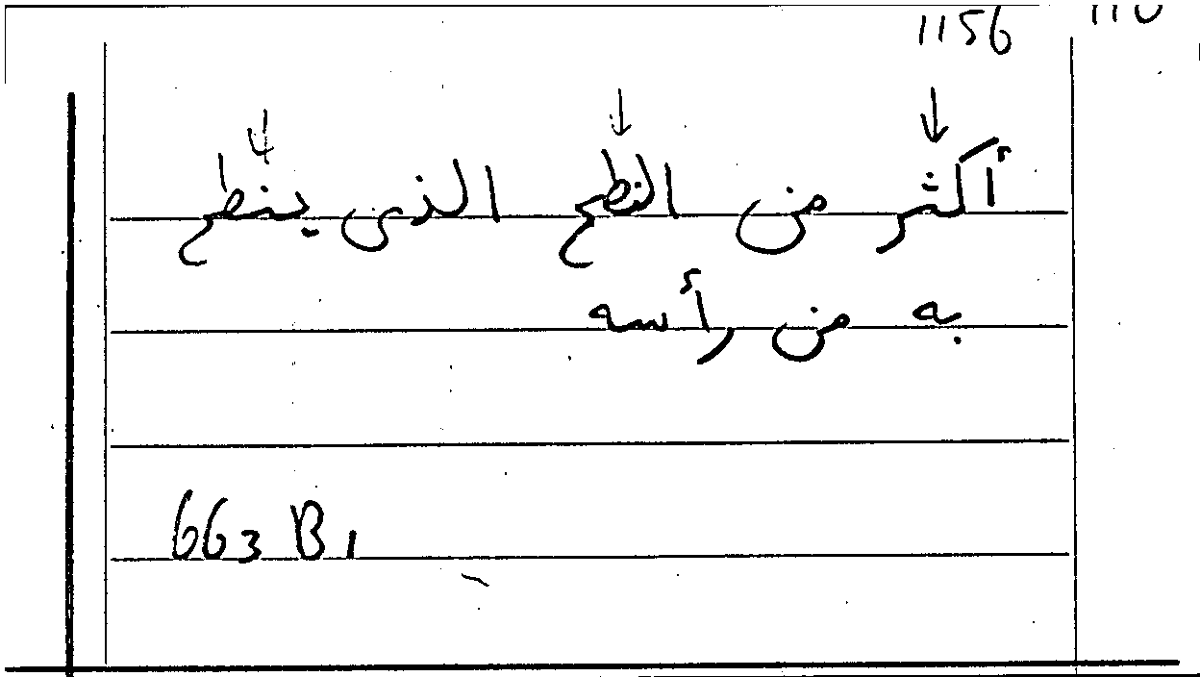 1156
أكثر من النطح الذي ينطح
به من رأسه
663 B1